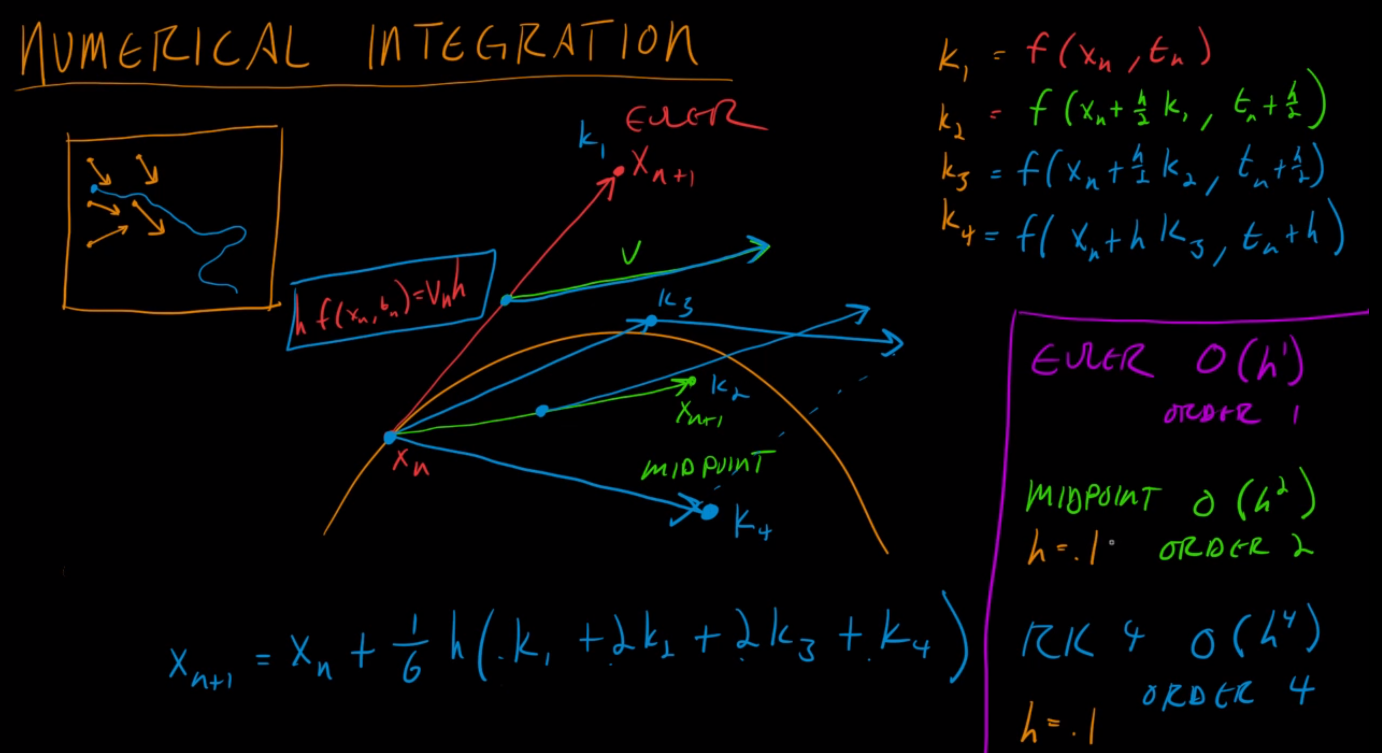 NUMERICAL INTEGRATION
k₁ = f(xₙ, tₙ)
k₂ = f(xₙ + h/2 k₁, tₙ + h/2)
k₃ = f(xₙ + h/2 k₂, tₙ + h/2)
k₄ = f(xₙ + h k₃, tₙ + h)
EULER
k₁
xₙ₊₁
V
h f(xₙ, tₙ) = Vₙh
k₃
k₂
xₙ₊₁
xₙ
MIDPOINT
k₄
EULER O(h¹)
ORDER 1
MIDPOINT O(h²)
h = .1 ORDER 2
RK 4 O(h⁴)
ORDER 4
h = .1
xₙ₊₁ = xₙ + 1/6 h(k₁ + 2k₂ + 2k₃ + k₄)